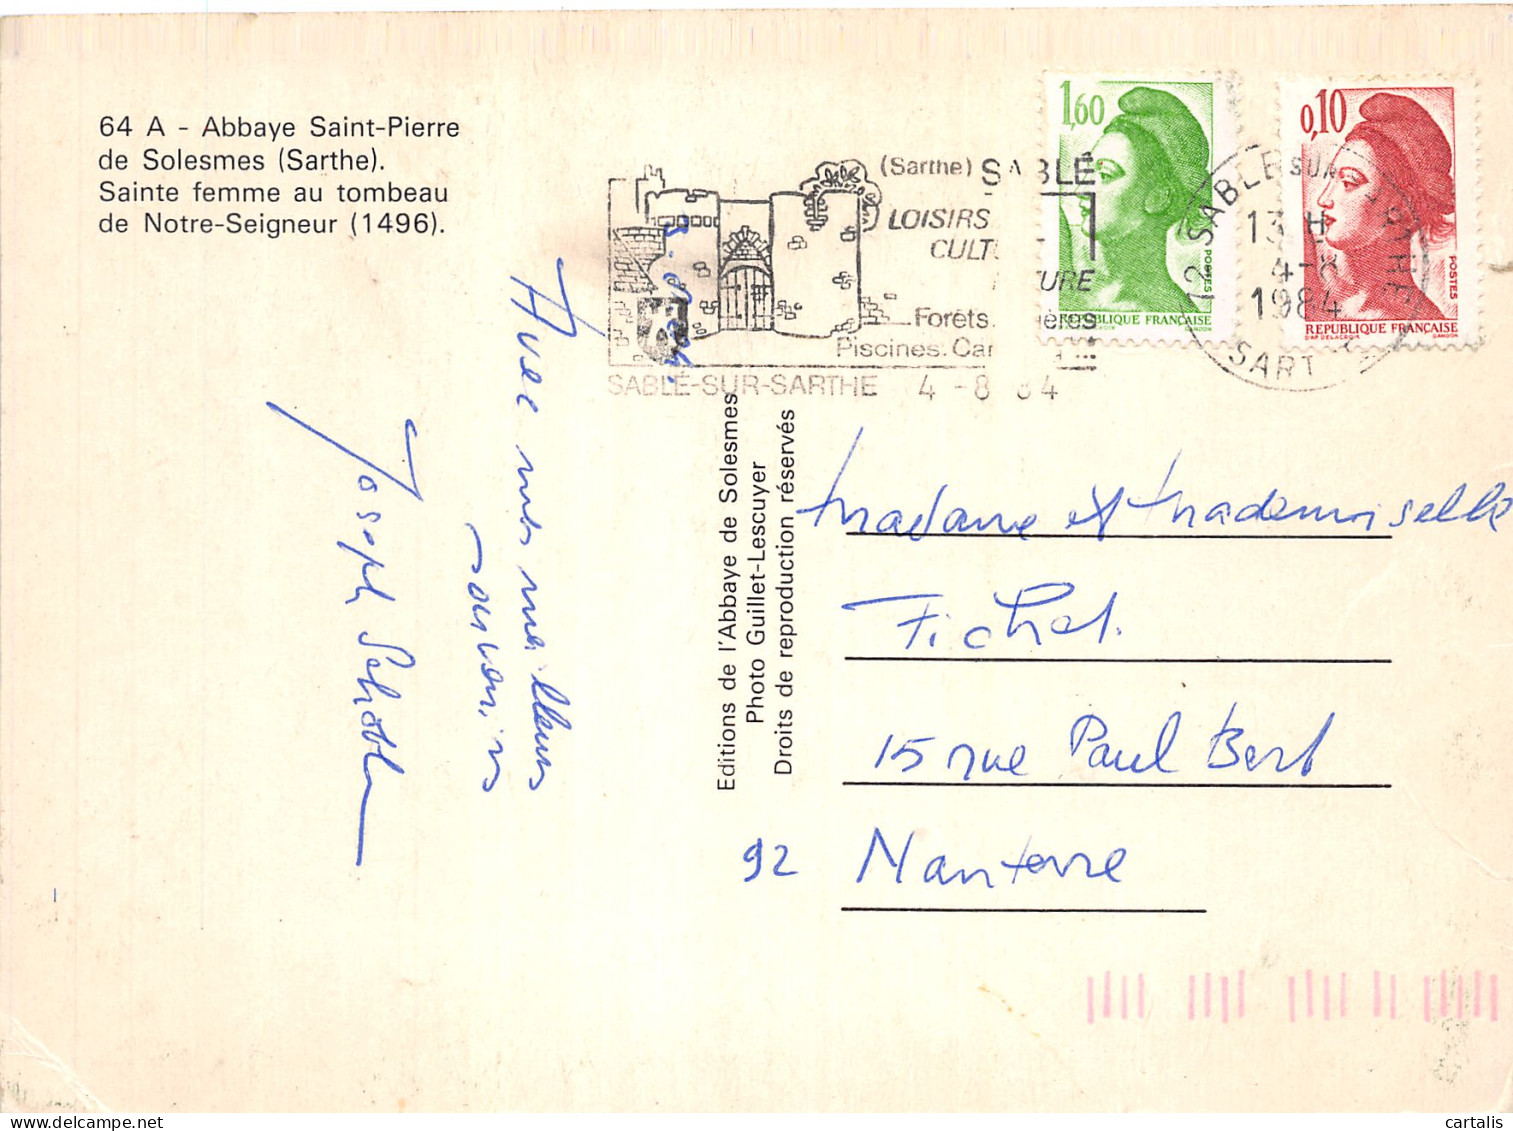 64 A - Abbaye Saint-Pierre
de Solesmes (Sarthe).
Sainte femme au tombeau
de Notre-Seigneur (1496).
(Sarthe) SABLÉ
LOISIRS
CULT
TURE
Forêts.
Piscines.
SABLÉ-SUR-SARTHE 4 - 8 84
1,60
POSTES
REPUBLIQUE FRANÇAISE
0,10
POSTES
REPUBLIQUE FRANÇAISE
D'AP. DELACROIX GANDON
72 SABLE SUR SARTHE
13 H
4-8
1984
SART
Avec mes meilleurs
souvenirs
Joseph
Editions de l'Abbaye de Solesmes
Photo Guillet-Lescuyer
Droits de reproduction réservés
Madame et Mademoiselle
Fichet.
15 rue Paul Bert
92 Nanterre
cartalis